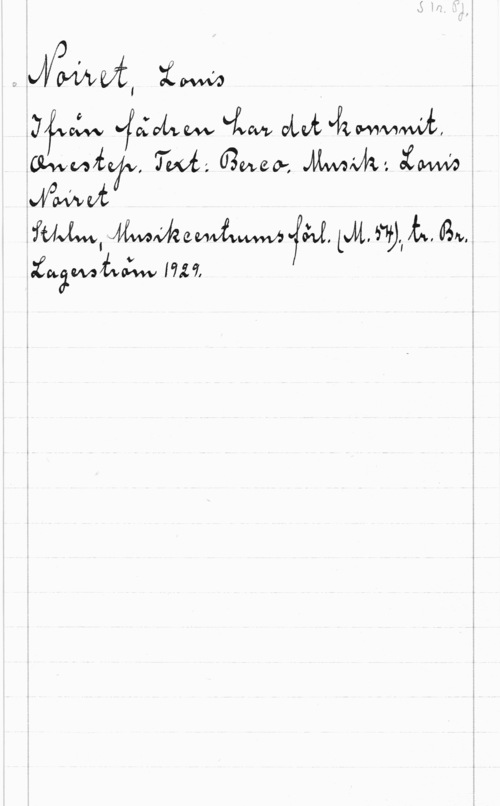 S 1n. Bj.
Noiret, Louis
Ifrån fädren har det kommit.
Onestep. Text: Berco. Musik: Louis
Noiret
Sthlm, Musikcentrums förl. (M. 54), tr. Br.
Lagerström 1929.